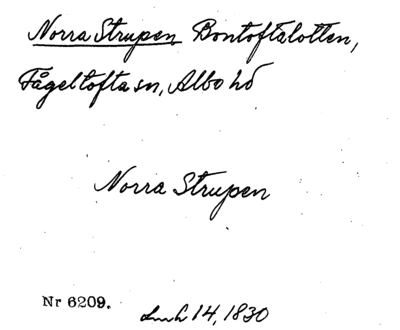 Norra Strupen Bontoftalotten,
Fågeltofta sn, Albo hd
Norra Strupen
Nr 6209.
Lmh 14, 1830